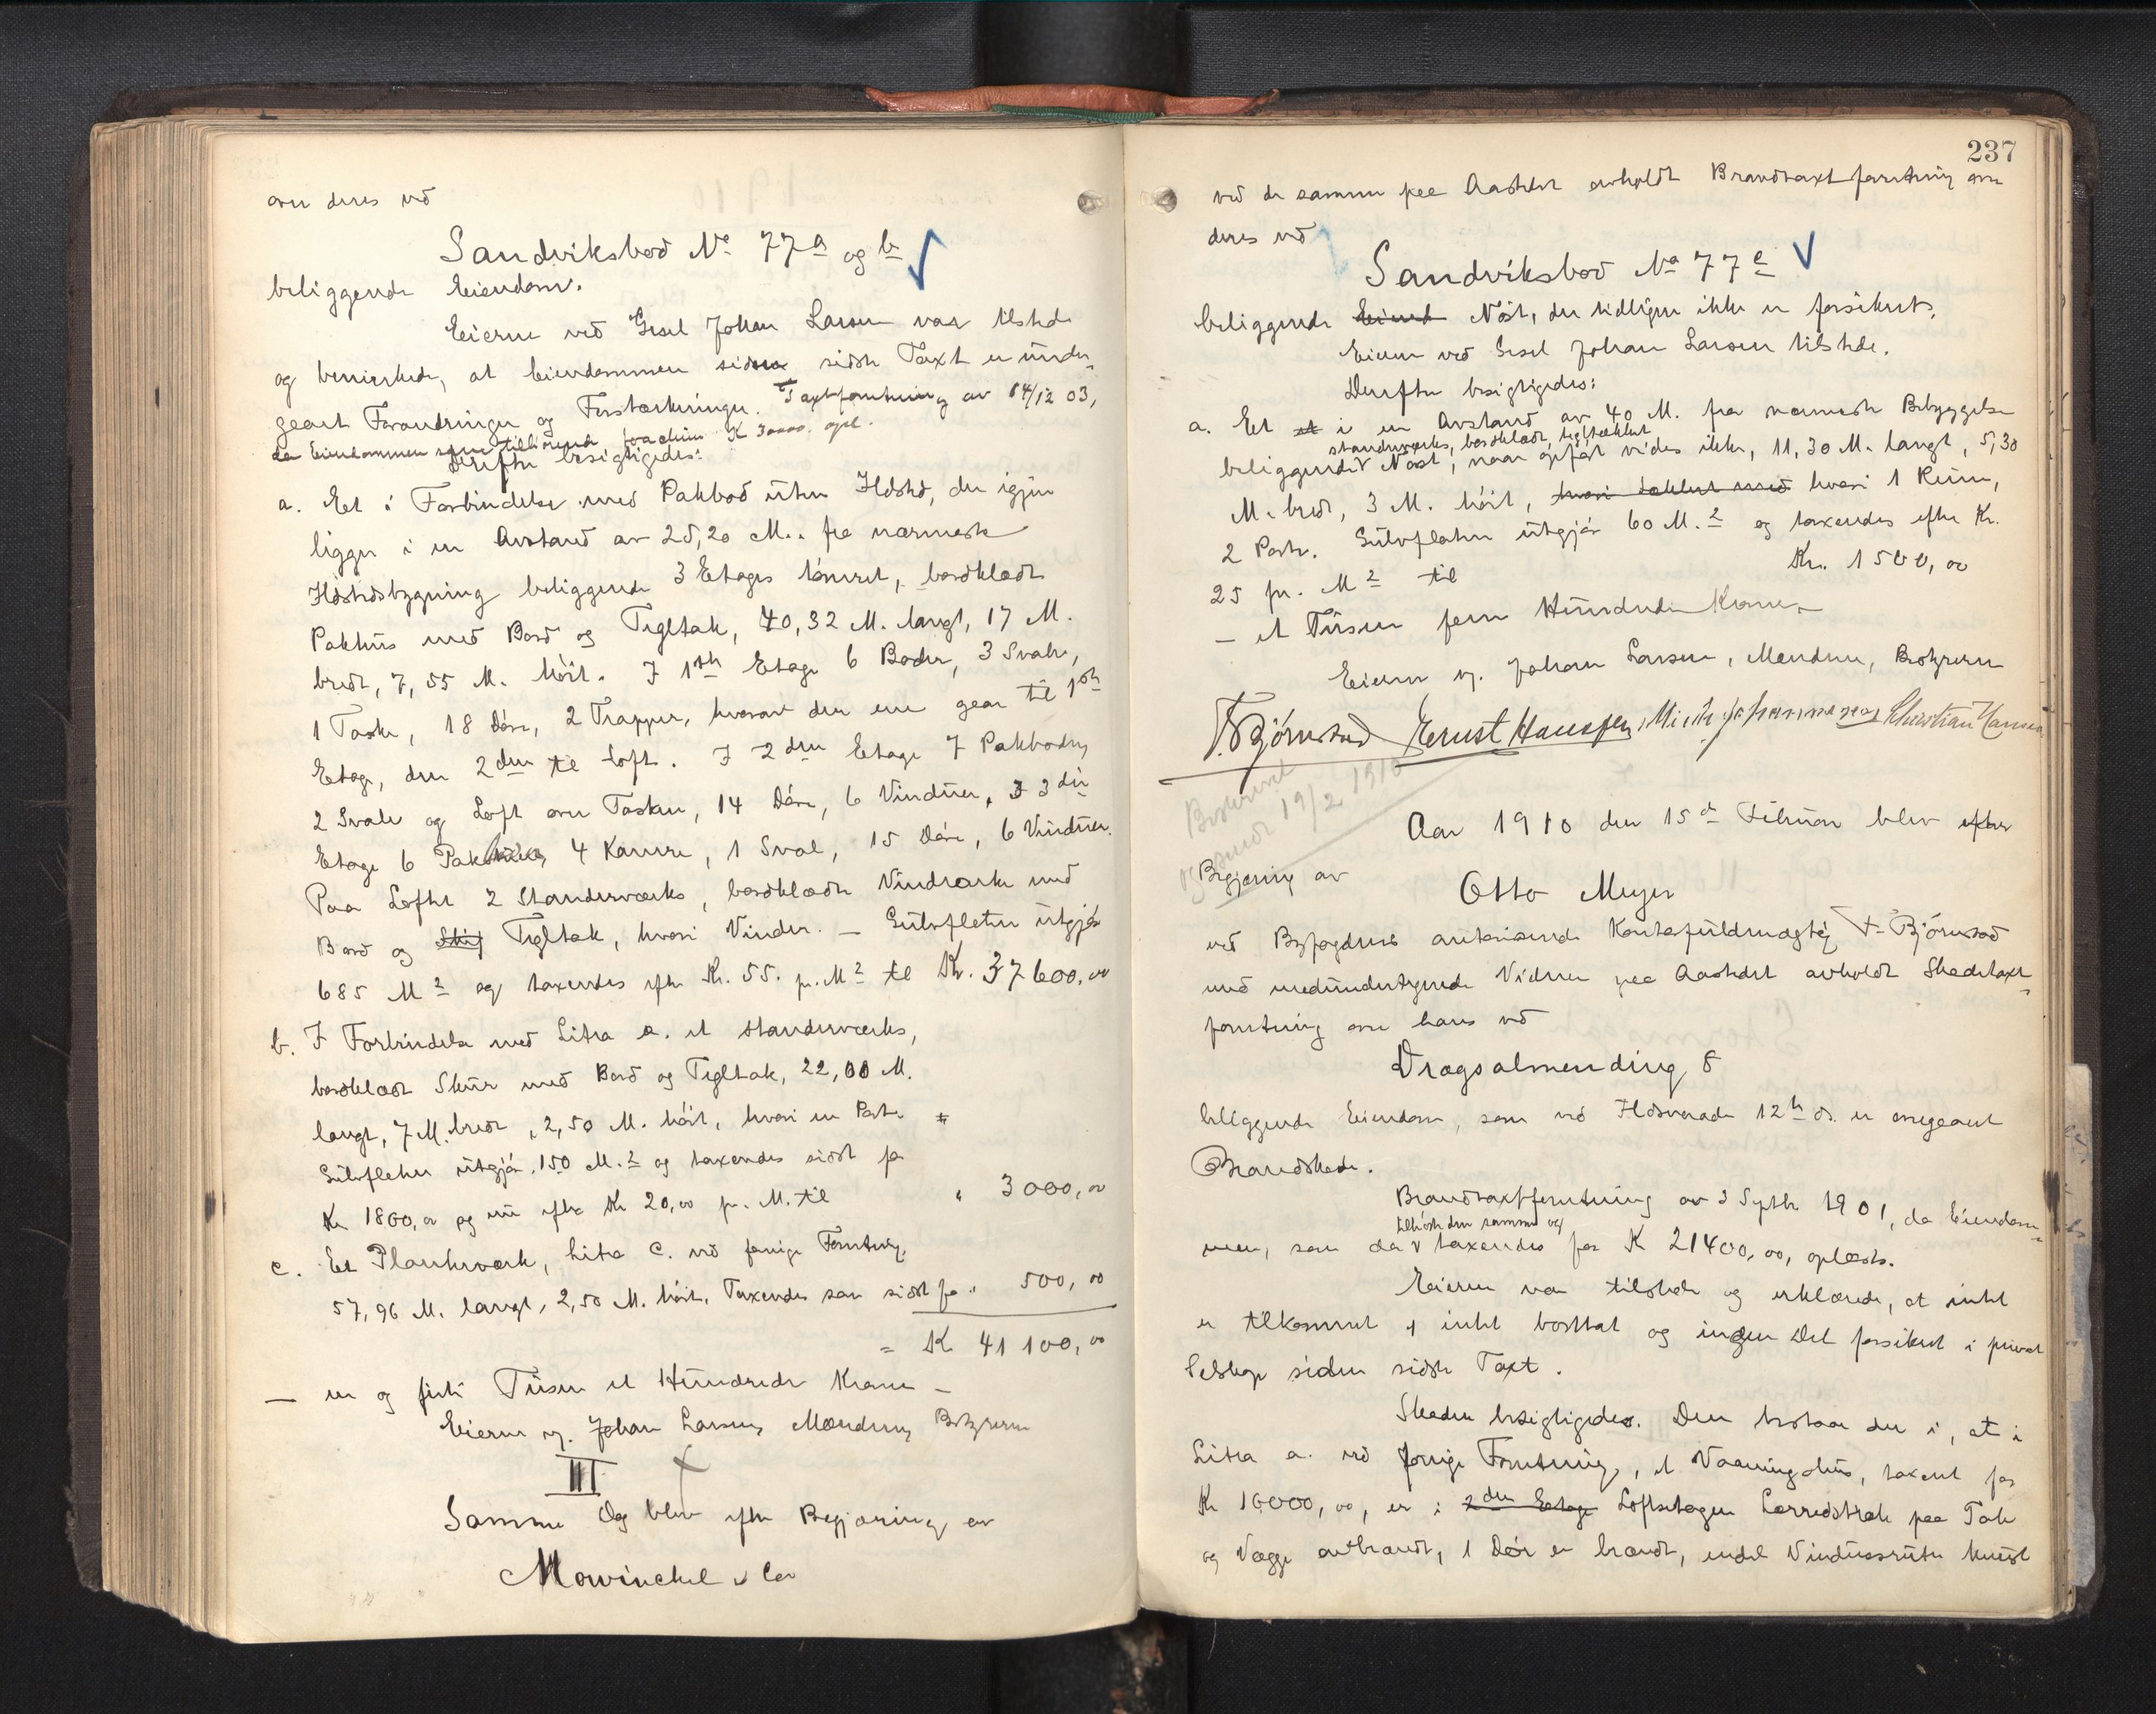 over deres ved
Sandviksbod No 77a og b
beliggende Eiendom.
Eierne ved Gesel Johan Larsen var tilstede
og bemerkede, at Eiendommen siden sidste Taxt er under-
gaaet Forandringer og Forstærkninger. Taxtforretning av 14/12 03,
da Eiendommen tilhørende Joachim K 30000. opl.
Derefter besigtigedes:
a. Et i Forbindelse med Pakbod uten Ildsted, der igjen
ligger i en Avstand av 25,20 M. fra nærmeste
Ildstedsbygning beliggende 3 Etages tømret, bordklædt
Pakhus med Bord og Tegltak, 40,32 M. langt, 17 M.
bredt, 7,55 M. høit. I 1ste Etage 6 Boder, 3 Svale,
1 Taske, 18 Døre, 2 Trapper, hvorav den ene gaar til 1ste
Etage, den 2den til Loft. I 2den Etage 7 Pakboder,
2 Svale og Loft over Tasken, 14 Døre, 6 Vinduer, I 3die
Etage 6 Pakboder, 4 Kamre, 1 Sval, 15 Døre, 6 Vinduer.
Paa Loftet 2 Standerverks, bordklædte Vindearke med
Bord og Tegltak, hvori Vinder. — Gulvflaten utgjør
685 M2 og taxendes efter Kr. 55. pr. M2 til Kr. 37600,00
b. I Forbindelse med Litra a. et standerverks,
bordklædt Skur med Bord og Tegltak, 22,00 M.
langt, 7 M. bredt, 2,50 M. høit, hvori en Port.
Gulvflaten utgjør 150 M.2 og taxendes sidst for
Kr 1800,00 og nu efter Kr 20,00 pr. M. til " 3000,00
c. Et Plankeverk, Litra C. ved forrige Forretning,
57,96 M. langt, 2,50 M. høit. Taxendes som sidst for " 500,00
= K 41100,00
— en og firti Tusen et Hundrede Kroner —
Eierne v. Johan Larsen, Mændene, Bestyreren
III
Samme Dag blev efter Begjæring av
Mowinckel & Co
237
ved de samme paa Aastedet avholdt Brandtaxtforretning over
deres ved
Sandviksbod No 77e
beliggende Eiend Nøst, der tidligere ikke er forsikret.
Eieren ved Gesel Johan Larsen tilstede.
Derefter besigtigedes:
a. Et et i en Avstand av 40 M. fra nærmeste Bebyggelse
standerverks, bordklædt, tegltækket
beliggende Nøst, naar opført vides ikke, 11,30 M. langt, 5,30
M. bredt, 3 M. høit, hvori 1 Rum,
2 Porte. Gulvflaten utgjør 60 M.2 og taxendes efter Kr.
25 pr. M2 til Kr. 1500,00
— et Tusen fem Hundrede Kroner —
Eieren v. Johan Larsen, Mændene, Bestyreren
F. Bjørnstad Ernst Hanssen Mich. Johannessen Christian Hansen
Beskrevet
sendt 19/2 1910
Aar 1910 den 15de Februar blev efter
Begjæring av
Otto Meyer
ved Byfogdens autoriserede Kontorfuldmægtig F. Bjørnstad
med medundertegnede Vidner paa Aastedet avholdt Skadetaxt-
forretning over hans ved
Dragsalmending 8
beliggende Eiendom, som ved Ildsvaade 12te ds. er overgaaet
Brandskade.
Brandtaxtforretning av 3 Septbr 1901, da Eiendom-
tilhørte den samme og
men, som da taxendes for K 21400,00, oplæstes.
Eieren var tilstede og erklærede, at intet
er tilkommet og intet borttat og ingen Del forsikret i privat
Selskap siden sidste Taxt.
Skaden besigtigedes. Den bestaar der i, at i
Litra a. ved forrige Forretning, et Vaaningshus, taxeret for
Kr 16000,00, er i 2den Etage Loftsetagen Lærredstræk paa Tak
og Vægge avbrændt, 1 Dør er brændt, endel Vinduesruter knust